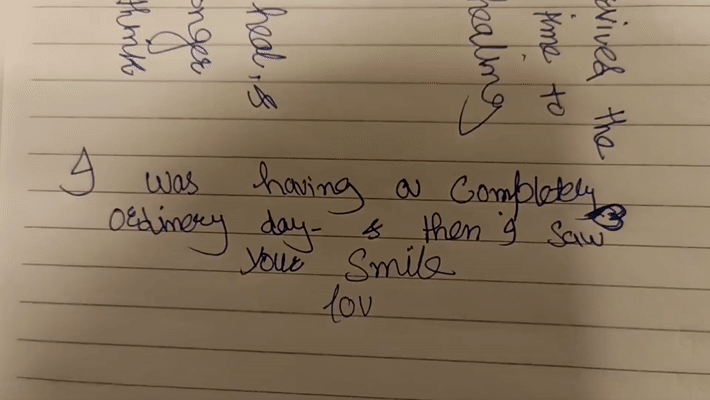 I was having a completely
ordinery day- & then I saw
your smile
lov
vived the
time to
healing
heal, &
onger
think